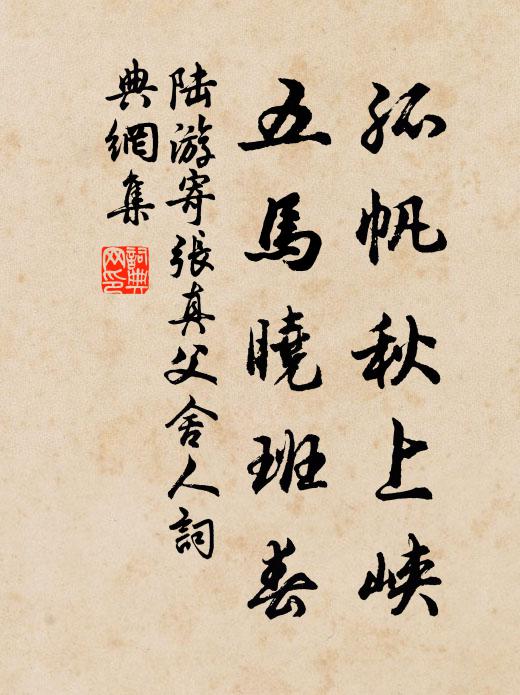 孤帆秋上峽
五馬曉班春
陸游寄張真父舍人詞
典網集
詞典
网印